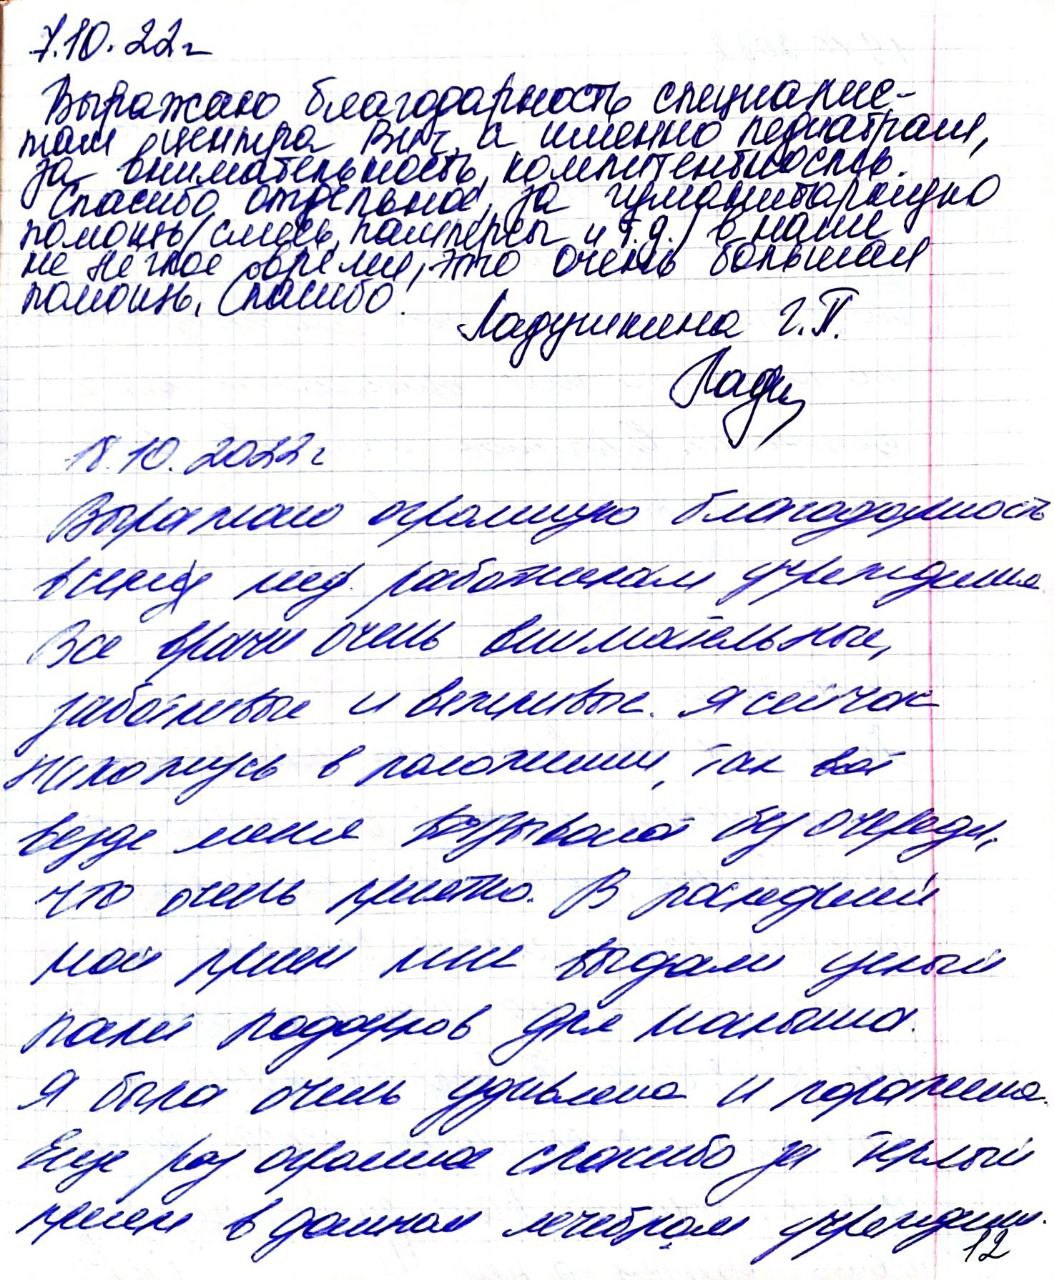 7.10.22г
Выражаю благодарность специалис-
там центра ВИЧ, а именно педиатрам,
за внимательность, компитентность.
Спасибо отдельное, за гуманитарную
помощь (смесь, памперсы и т.д.) в наше
не легкое время, это очень большая
помощь. Спасибо!
Ладушкина Г.П.
18.10.2022г
Выражаю огромную благодарность
всем мед. работникам учреждения
Все врачи очень внимательные,
заботливые и вежливые. Я сейчас
нахожусь в положении, так вот
везде меня вызывали без очереди,
что очень приятно. В последний
мой прием мне выдали целый
пакет подарков для малыша.
Я была очень удивлена и поражена.
Еще раз огромное спасибо за теплый
прием в данном лечебном учреждении.
12